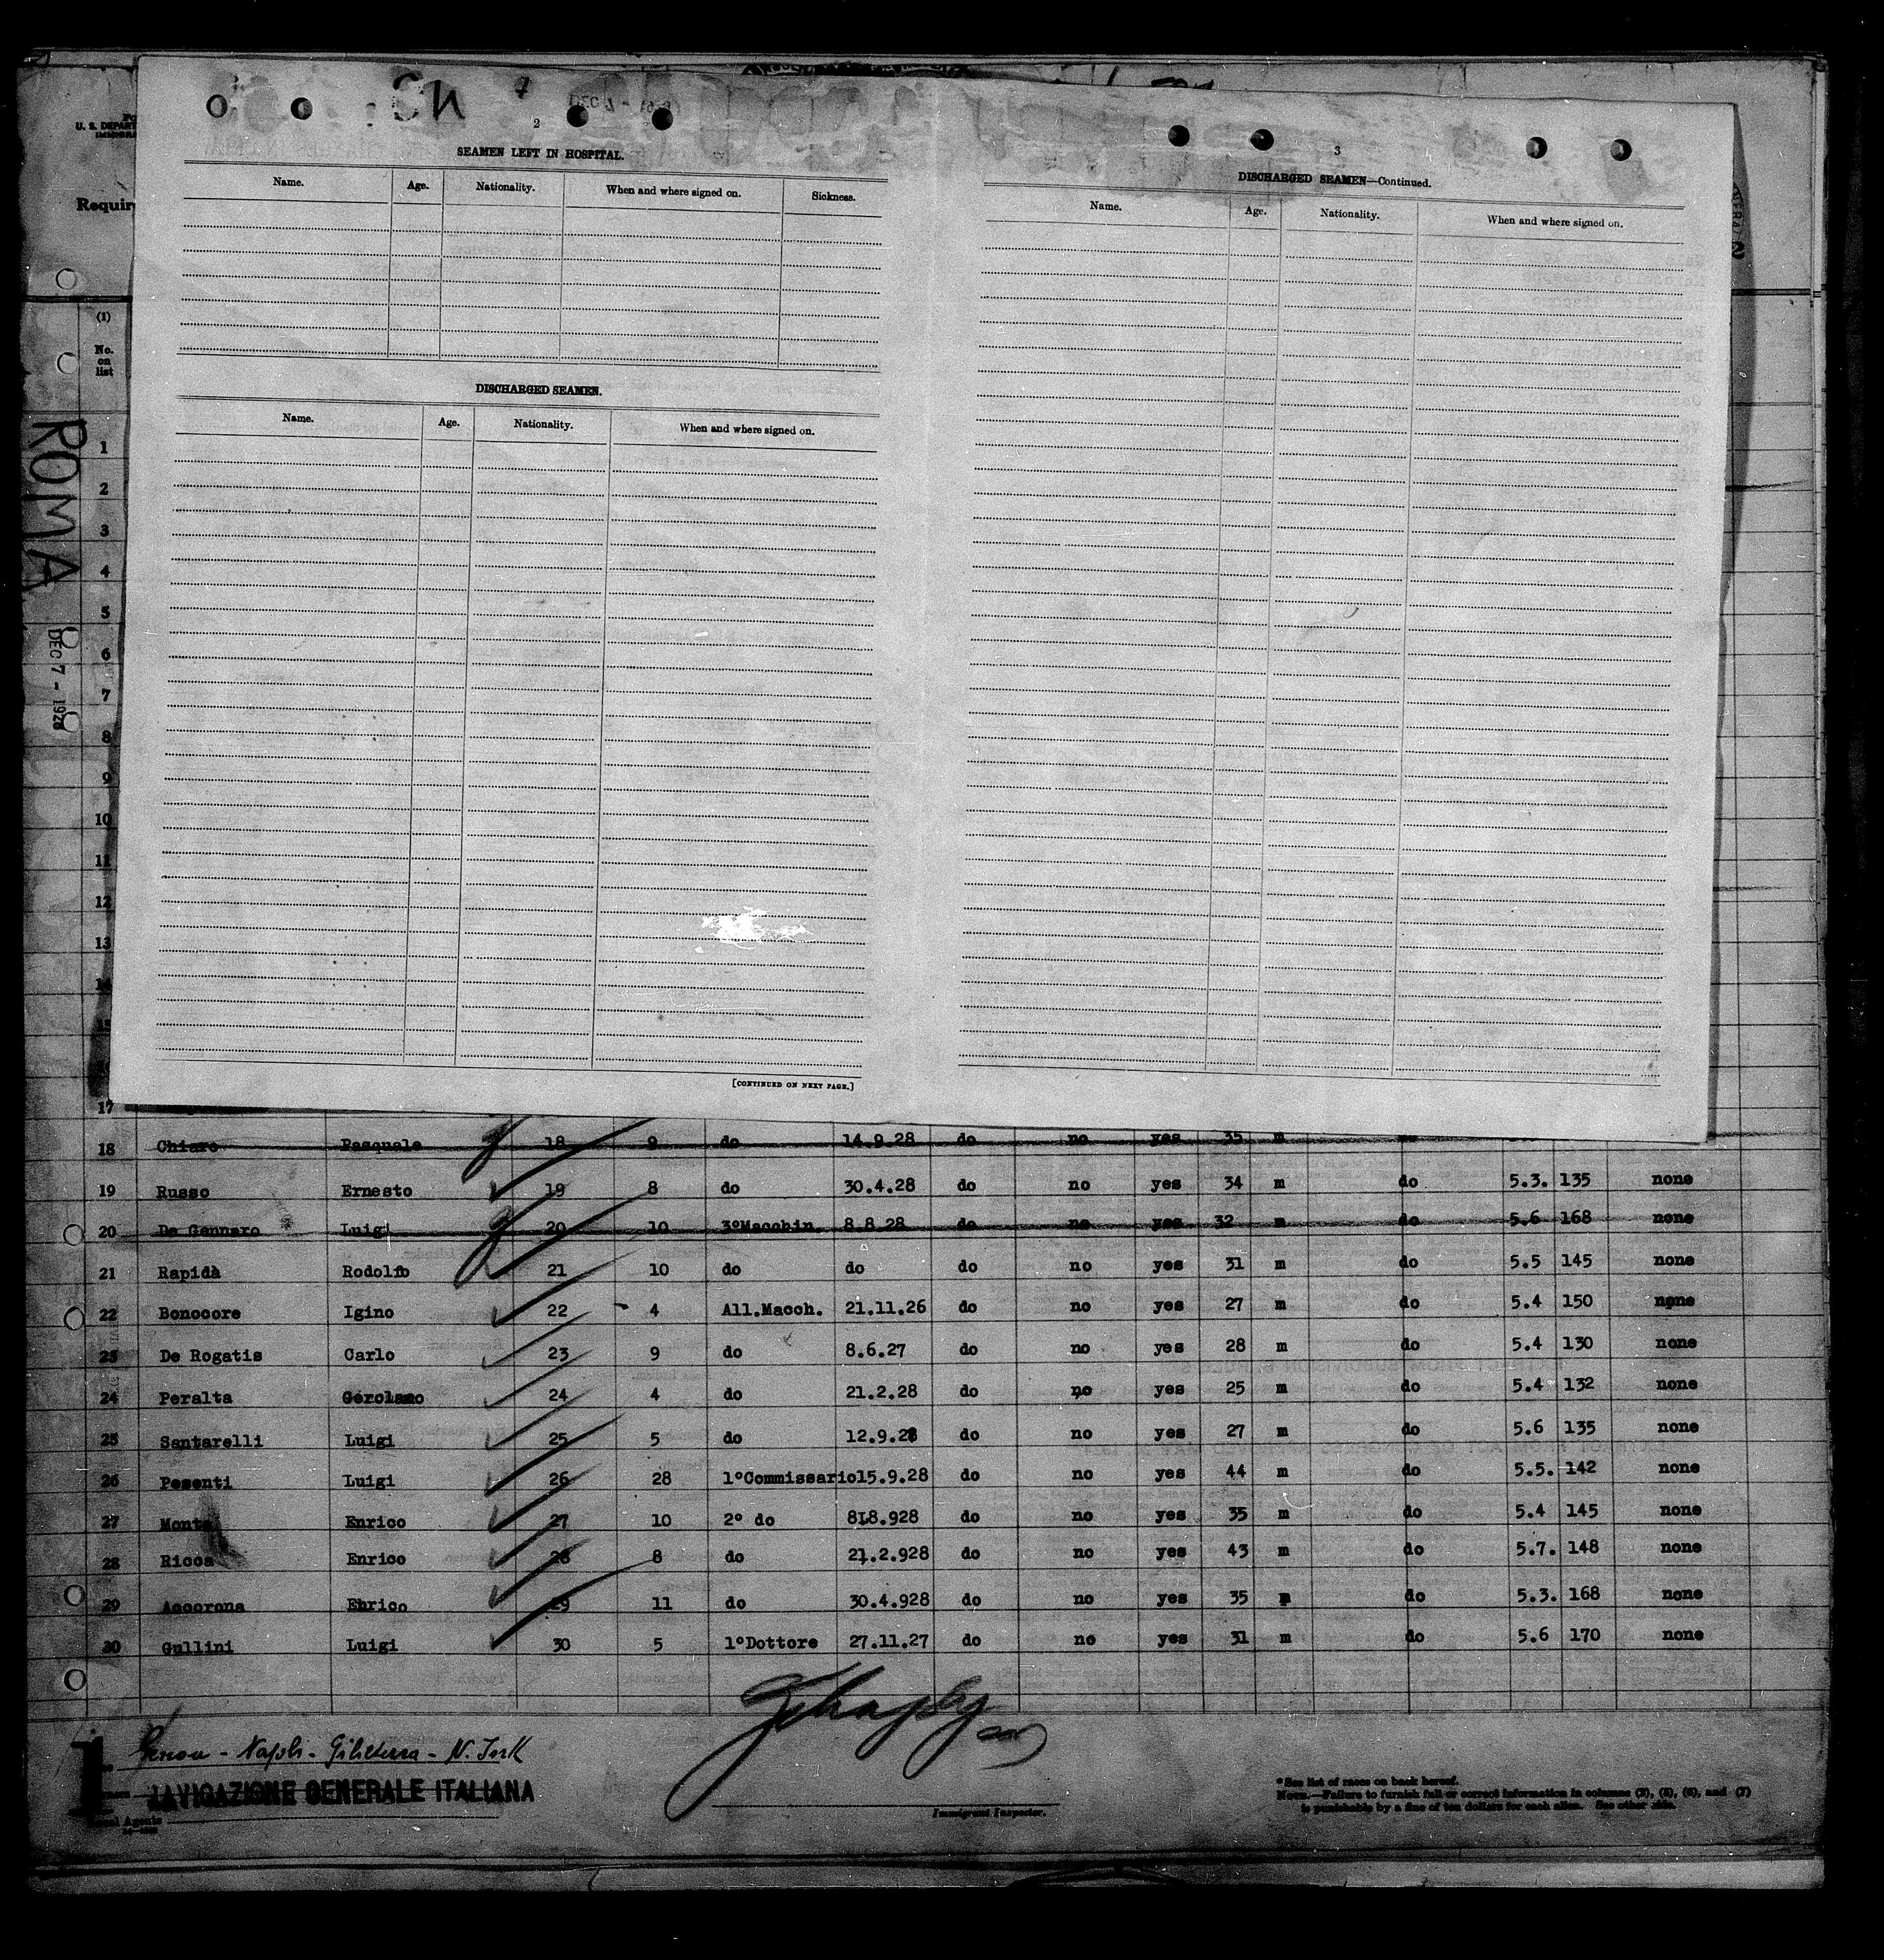 2
SEAMEN LEFT IN HOSPITAL.
Name. Age. Nationality. When and where signed on. Sickness.
DISCHARGED SEAMEN.
Name. Age. Nationality. When and where signed on.
[CONTINUED ON NEXT PAGE.]
3
DISCHARGED SEAMEN—Continued.
Name. Age. Nationality. When and where signed on.
U. S. DEPART
Requir
(1)
No.
on
list
ROMA
DEC 7 - 1928
1
2
3
4
5
6
7
8
9
10
11
12
13
14
15
17
18 Chiaro Pasquale 18 9 do 14.9.28 do no yes 35 m
19 Russo Ernesto 19 8 do 30.4.28 do no yes 34 m do 5.3. 135 none
20 De Gennaro Luigi 20 10 3ºMacchin 8.8.28 do no yes 32 m do 5.6 168 none
21 Rapidà Rodolfo 21 10 do do do no yes 31 m do 5.5 145 none
22 Bonocore Igino 22 4 All.Macch. 21.11.26 do no yes 27 m do 5.4 150 none
23 De Rogatis Carlo 23 9 do 8.6.27 do no yes 28 m do 5.4 130 none
24 Peralta Gerolamo 24 4 do 21.2.28 do no yes 25 m do 5.4 132 none
25 Santarelli Luigi 25 5 do 12.9.28 do no yes 27 m do 5.6 135 none
26 Pesenti Luigi 26 28 1ºCommissario 15.9.28 do no yes 44 m do 5.5. 142 none
27 Monta Enrico 27 10 2º do 818.928 do no yes 35 m do 5.4 145 none
28 Ricca Enrico 28 8 do 21.2.928 do no yes 43 m do 5.7. 148 none
29 Accorona Enrico 29 11 do 30.4.928 do no yes 35 m do 5.3. 168 none
30 Gullini Luigi 30 5 1ºDottore 27.11.27 do no yes 31 m do 5.6 170 none
1
Genova - Napoli - Gibilterra - N. York
NAVIGAZIONE GENERALE ITALIANA
Immigrant Inspector.
*See list of races on back hereof.
NOTE.—Failure to furnish full or correct information in columns (3), (5), (6), and (7)
is punishable by a fine of ten dollars for each alien. See other side.